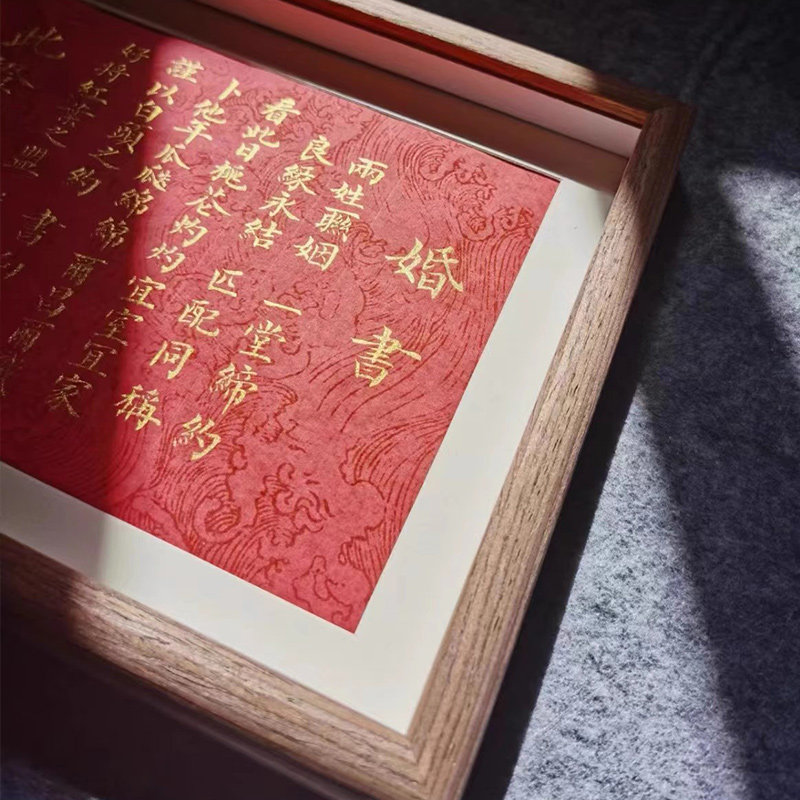 婚書
兩姓聯姻 一堂締約
良緣永結 匹配同稱
看此日桃花灼灼 宜室宜家
卜他年瓜瓞綿綿 爾昌爾熾
謹以白頭之約 書向
好將紅葉之盟
此證